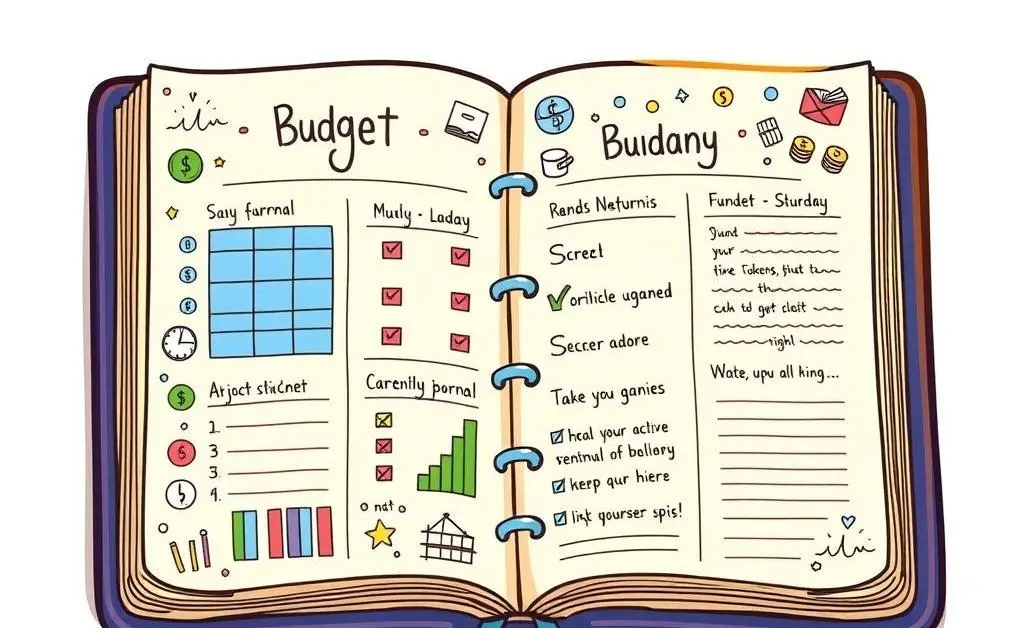 Budget
Say farmal
Muely - Laday
Arject stidnet
1.
3
3.
4.
Carenlly pornal
nat
Buidany
Rands Neturnis
Screcl
orilicle uganed
Seccer adore
Take you ganies
heal your active
venfnul of ballory
keep qur hiere
link qourser spis!
Fundet - Sturday
your
the
cah to get cloit
right
Wate, upu all king...